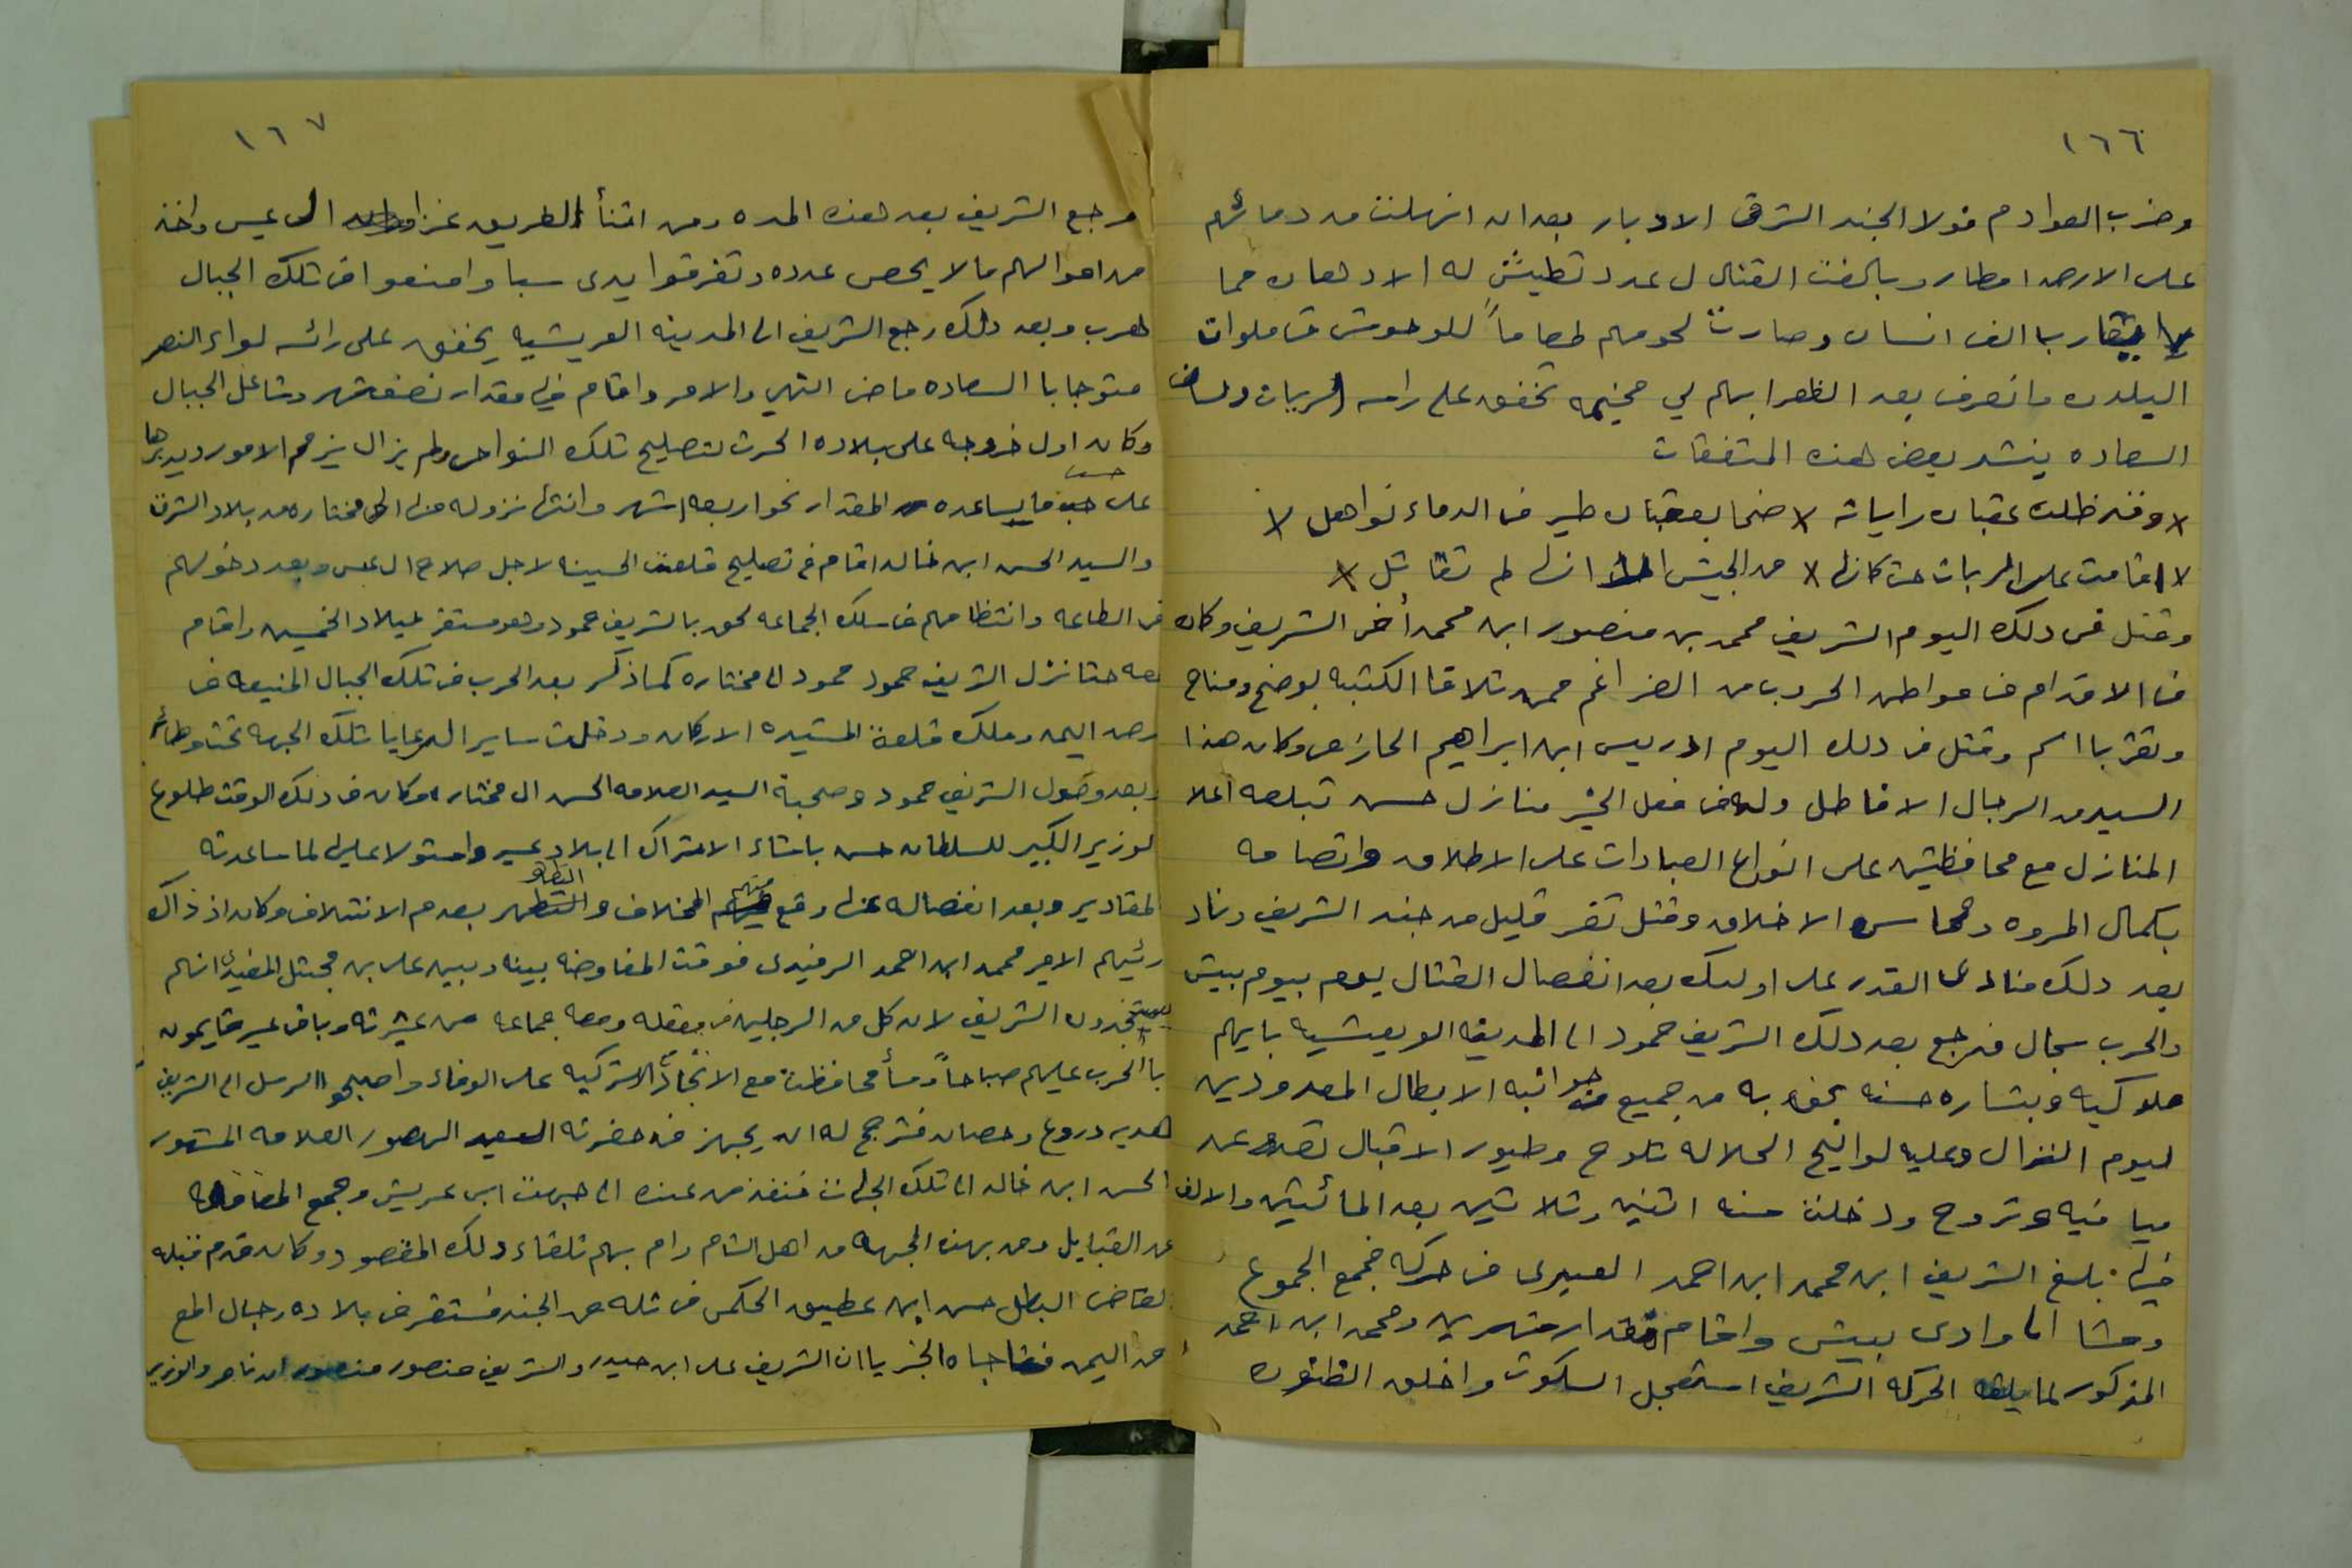 ١٦٦
وضرب الصوادم فولا الجند الشرقى الادبار بعد ان انهلت من دمائهم
على الارض امطار وبالغت القتال ل عدد تطيش له الادهان مما
يقارب الف انسان وصارت لحومهم طعاماً للوحوش
البلدن فانصرف بعد الظفر ابهم لي مخيمه تخفق على راسه الريات ولسان
السعاده ينشد بعض هذه المتفقات
وقد ظلت عقبان راياته ضحا بعقبان طير فى الدماء نواهل
اقامت على الريات حتى كانها من الجيش الا انها لم تقاتل
وقتل فى دلك اليوم الشريف محمد بن منصور ابن محمد أخى الشريف وكان
فى الاقدام فى مواطن الحروب من الضراغم ممن تلاقا الكتيبه بوضح ومناح
وتغر باسم وقتل فى دلك اليوم ادريس ابن ابراهيم الحازمى وكان هذا
السيد من الرجال الافاضل وله فى فعل الخير منازل حسن تبلعه اعلا
المنازل مع محافظته على انواع العبادات على الاطلاق واتصافه
بكمال المروه ومحاسن الاخلاق وقتل نفر قليل من جند الشريف وناد
بعد دلك منادى القدر على اوليك بعد انفصال القتال يوم بيوم بيش
والحرب سجال فرجع بعد دلك الشريف حمود الى المدينه العريشيه بابهه
ملوكيه وبشاره حسنه تحف به من جميع جوانبه الابطال المعدودين
ليوم النزال وعليه لوايح الجلاله تلوح وطيور الاقبال تصدح عند
ميامنيه وتروح ودخلت سنه اثنين وثلاثين بعد المائيتين والالف
فيها بلغ الشريف ابن محمد ابن احمد العسيرى فى حركه فجمع الجموع
ومشا الى وادى بيش واقام مقدار شهرين ومحمد ابن احمد
المذكور لما بلغه الحركه الشريف استعجل السكوت واخلق الظنون
١٦٧
فرجع الشريف بعد هذه المده ومن اثنأ الطريق غزا الى عبس واخذ
من اموالهم ما لا يحصى عدده وتفرقوا يدى سبا وامنعوا فى تلك الجبال
هرب وبعد دلك رجع الشريف الى المدينه العريشيه يخفق على رائسه لواء النصر
متوجا با السعاده ماضى النهي والامر واقام فيها مقدار نصف شهر وشاغل الجبال
وكان اول خروجه على بلاده الحرث لتصليح تلك النواحى ولم يزال يزحم الامور ويدبرها
على حسب ما يساعده المقدار نحو اربعه اشهر وانتها نزوله منها الى مختاره من بلاد الشرف
والسيد الحسن ابن خالد اقام فى تصليح قلعت الحسينه لاجل صلاح ال عبس وبعد دخولهم
فى الطاعه وانتظامهم فى سلك الجماعه لحق بالشريف حمود وهو مستقر لبلاد الخميسين واقام
معه حتا نزل الشريف حمود محمود الى مختاره كما ذكر بعد الحرب فى تلك الجبال المنيعه فى
ارض اليمن وملك قلعة المشيده الاركان ودخلت ساير الرعايا تلك الجهه تحت وطائه
وبعد وصول الشريف حمود وصحبة السيد العلامه الحسن الى مختاره وكان فى ذلك الوقت طلوع
الوزير الكبير للسلطان حسن باشاء الاتراك الى بلاد عسير واستولا عليها لما ساعدته
المقادير وبعد انفصاله عنها وقع منهم الخلاف والتظاهر بعدم الائتلاف وكان اذ ذاك
رئيهم الامير محمد ابن احمد الرفيدى فوقت المفاوضه بينه وبين على بن مجثل المغيدى انهم
يستنجدون الشريف لان كل من الرجلين فى معقله ومعه جماعه من عشيرته وباقى عسير قايمون
با الحرب عليهم صباحاً ومسأ محافظت مع الانحاز التركيه على الوفاء واصبحوا الرسل الى الشريف
هديه دروع وحصان فترجح له ان يجهز من حضرته السيد الهصور العلامه المشهور
الحسن ابن خالد الى تلك الجهات فنفذ من عنده الى جهت ابى عريش وجمع
من القبايل ومن بهذه الجهه من اهل الشام رام بهم تلقاء دلك المقصود وكان قدم قبله
القاضى البطل حسن ابن عطيف الحكمى فى ثله من الجند فستقر فى بلاده رجال المع
من اليمن ففاجاه الخبر يا ان الشريف على ابن حيدر والشريف منصور ابن ناصر والوزير